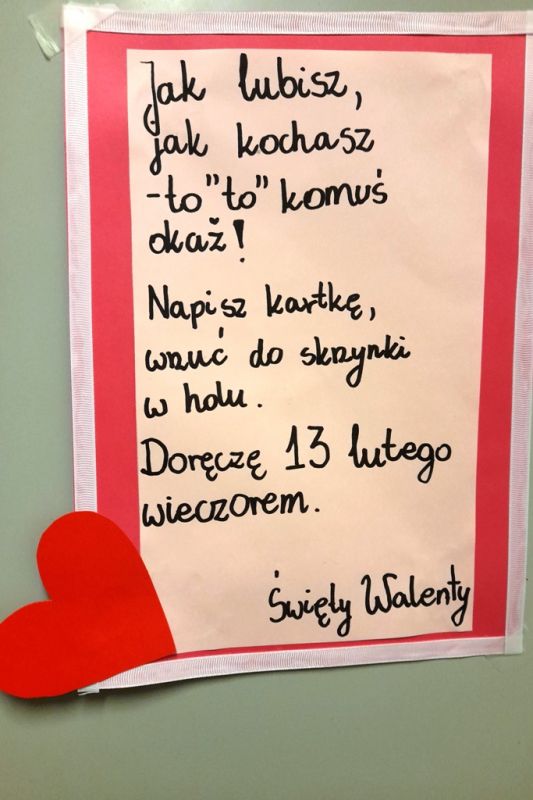 Jak lubisz,
jak kochasz
-to "to" komuś
okaż!
Napisz kartkę,
wrzuć do skrzynki
w holu.
Doręczę 13 lutego
wieczorem.
Święty Walenty